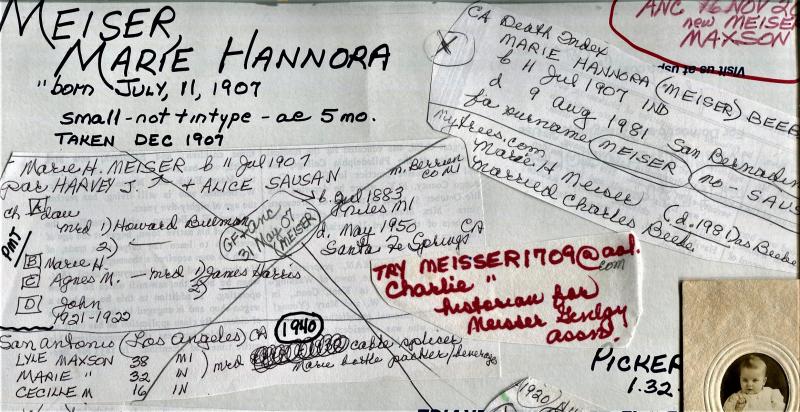 MEISER,
MARIE HANNORA
" born JULY, 11, 1907
small - not tintype - ae 5 mo.
TAKEN DEC 1907
ANC 16 NOV 20
new MEISER
MAXSON
Visit us at
X
CA Death Index
MARIE HANNORA (MEISER) BEEB
b 11 Jul 1907 IND
d 9 Aug 1981
fa surname MEISER
San Bernadin
no - SAUS
mytrees.com
Marie H Meiser (d. 1981 as Beebe
married Charles Beebe.
Marie H. MEISER b 11 Jul 1907
par HARVEY J. + ALICE SAUSAN
m. Berrien co MI
b. Jul 1883
Niles MI
d. May 1950 CA
Santa Fe Springs
ch A dau
mrd 1) Howard Billman
2)
PMT/
B Marie H.
C Agnes M. - mrd 1) James Harris
2)
D John
1921-1922
GF+Anc
31 May 07
MEISER
TRY MEISSER1709@aol.com
Charlie "
historian for
Meisser Genlgy
assn.
San Antonio (Los Angeles) CA 1940
LYLE MAXSON 38 MI
MARIE " 32 IN
CECILLE M 16 IN
mrd
cable splicer
Marie bottle packer/beverage
PICKER
1.32.
(1920)